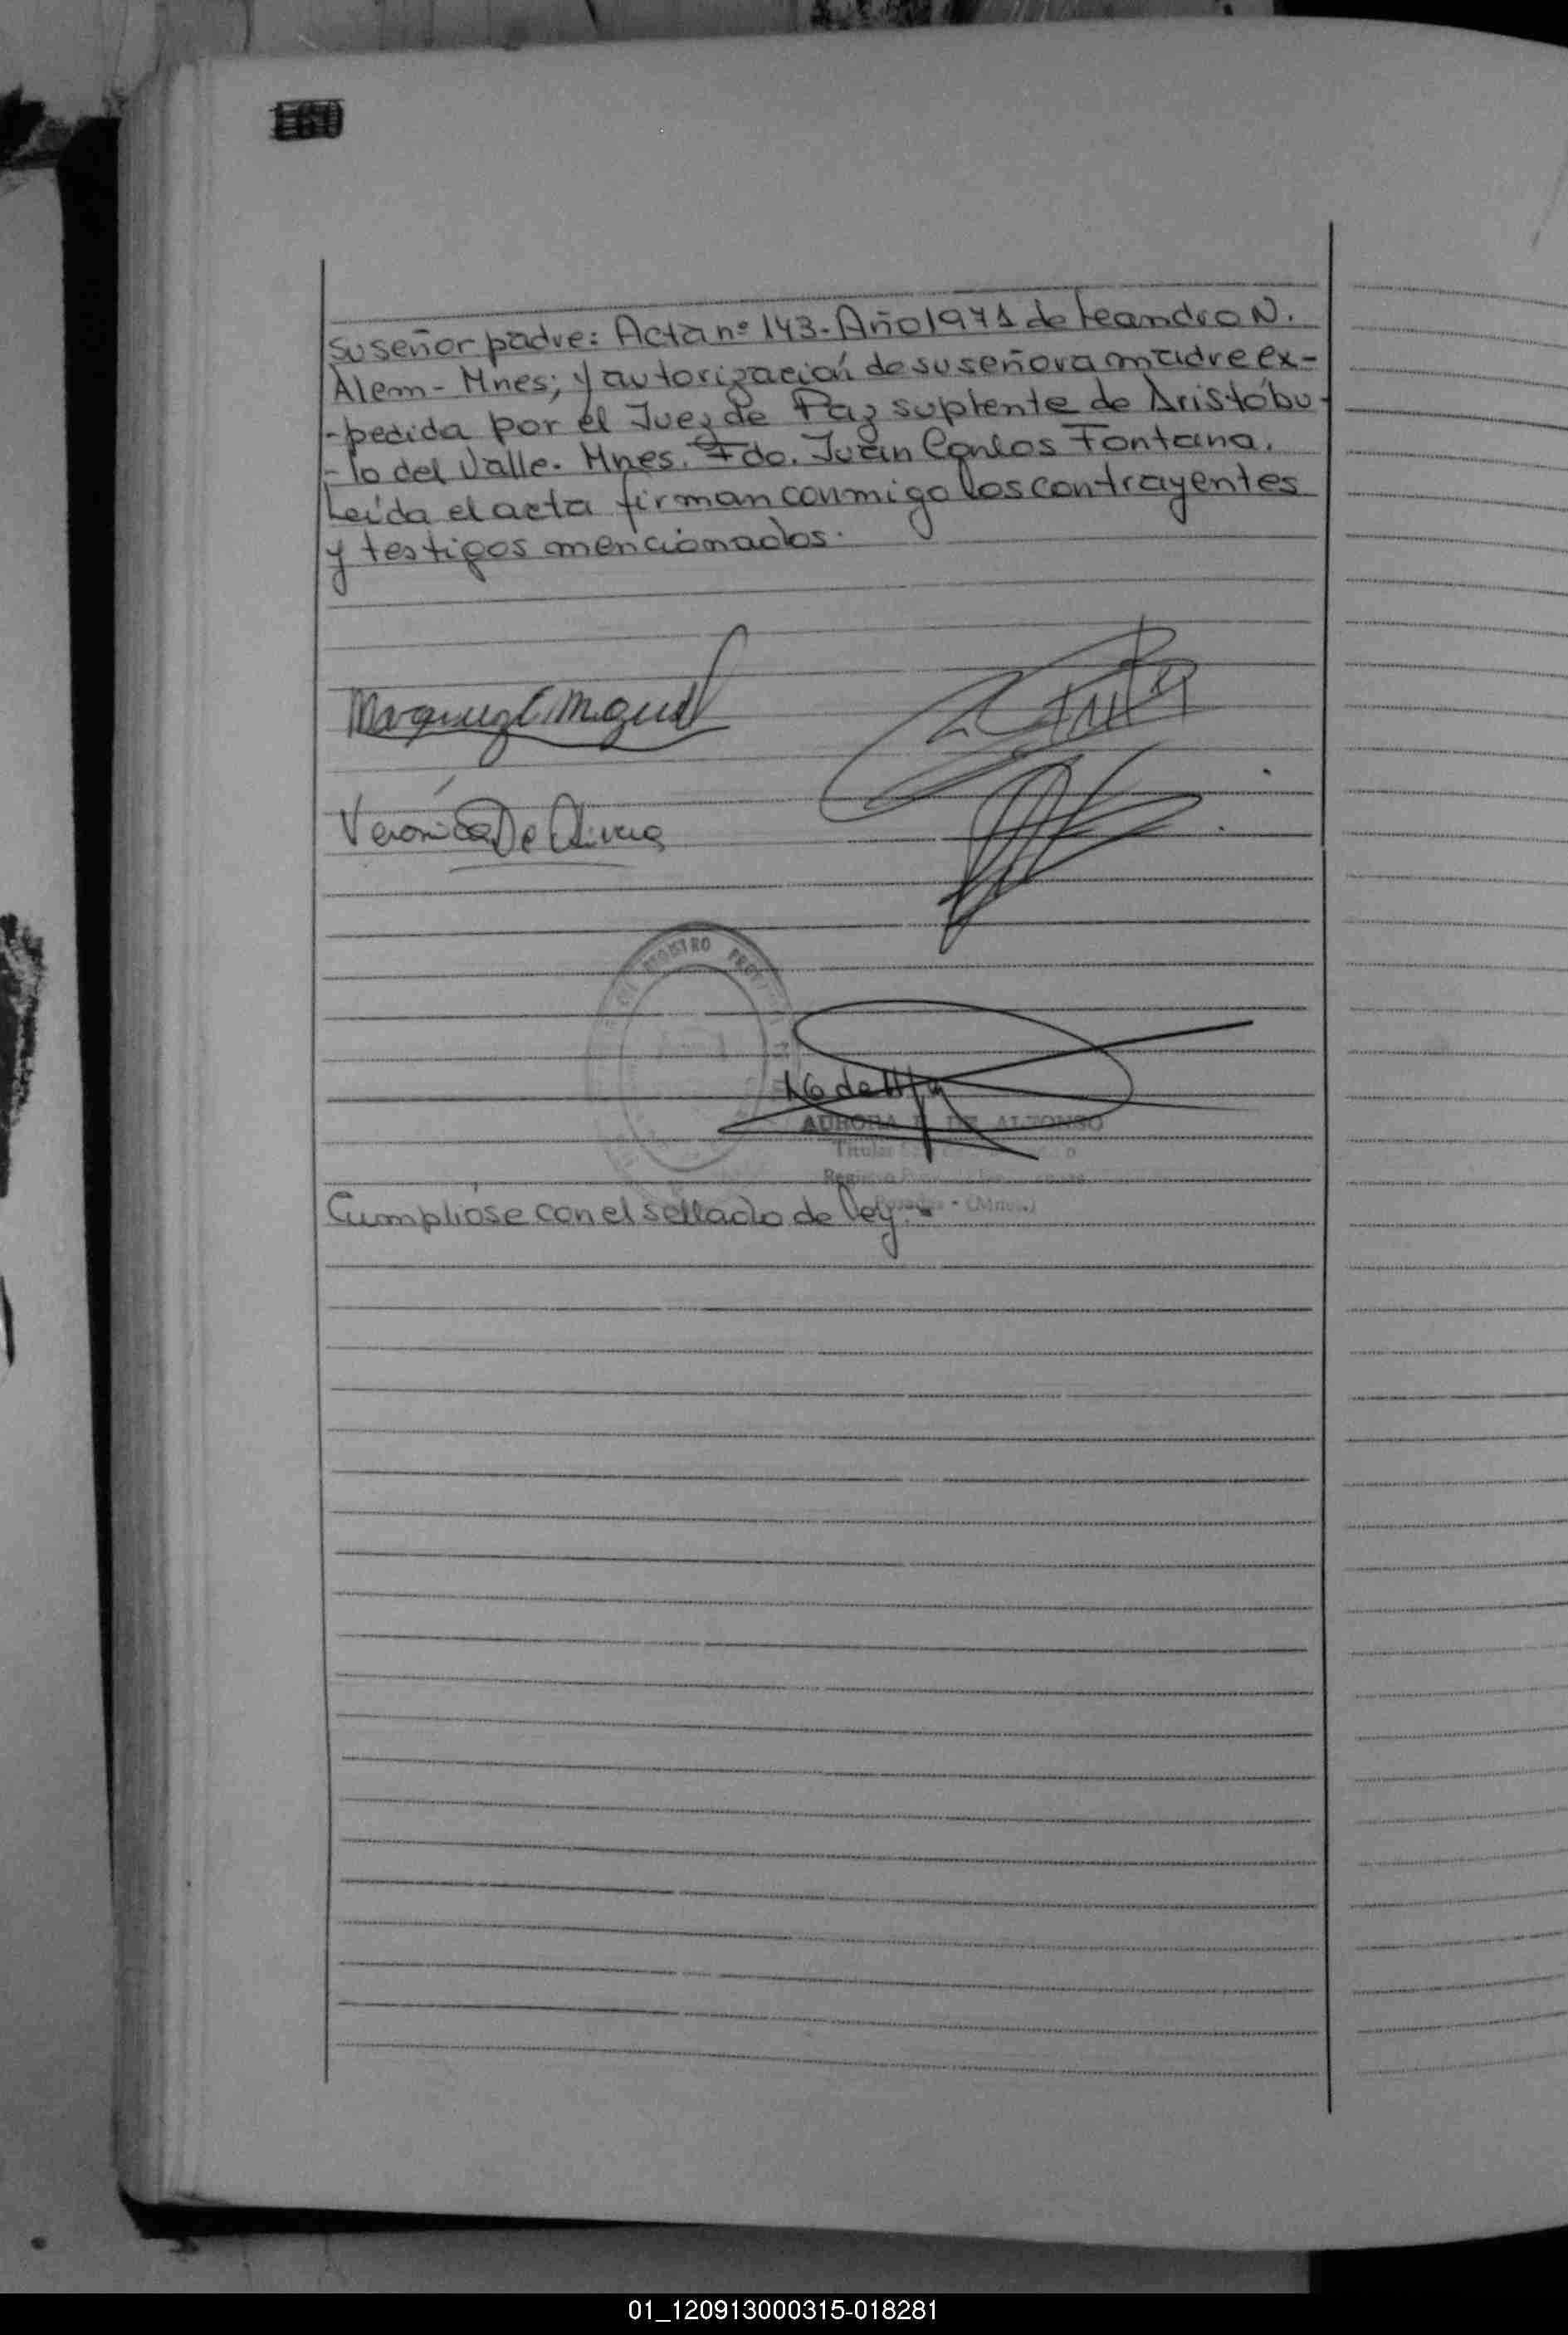 160
su señor padre: Acta nº 143- Año 1971 de Leandro N.
Alem - Mnes; y autorización de su señora madre ex-
-pedida por el Juez de Paz suplente de Aristóbu-
-lo del Valle. Mnes. Fdo. Juan Carlos Fontana.
Leída el acta firman conmigo los contrayentes
y testigos mencionados.
Miguel
Verónica De Olivera
REGISTRO
AURORA DE ALFONSO
Titular
Posadas - (Mnes.)
Cumplióse con el sellado de ley.-
01_120913000315-018281